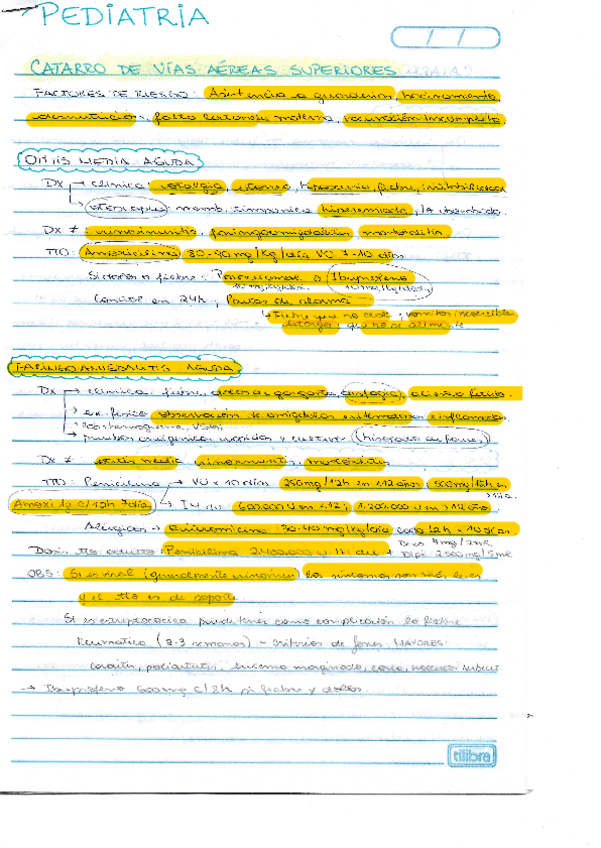 PEDIATRIA
/ /
CATARRO DE VÍAS AÉREAS SUPERIORES
FACTORES DE RIESGO: Asistencia a guarderías, hacinamiento
desnutrición, falta lactancia materna, vacunación incompleta
OTITIS MEDIA AGUDA
DX → clínica: otalgia, otorrea, hipoacusia, fiebre, irritabilidad
otoscopia: memb. timpánica hiperemiada,
DX ≠: rinosinusitis, faringoamigdalitis, mastoiditis
TTO: Amoxicilina 80-90 mg/kg/día VO 7-10 días
Si dolor o fiebre: Paracetamol o Ibuprofeno
10 mg/kg/dosis
Control en 24h, Pautas de alarma
↳ Fiebre que no cede, vomitos
letargo, que no se alime
FARINGOAMIGDALITIS AGUDA
DX → clínica: fiebre, odinofagia,
→ ex. físico observación de amígdalas eritematosas e inflamadas
→ hemograma, VSG
→ pruebas antigénica rápidas y cultivo (hisopado de fauces)
DX ≠: otitis media, rinosinusitis,
TTO: Penicilina → VO x 10 días 250mg/12h en <12 años, 500mg/12h en
Amoxi 1g c/12h 7día → IM du 600000 U en <12; 1.200.000 U en >12 años
Alérgicos → 30-40 mg/kg/día x 10 días
Dosis tto adulto: Penicilina 2.400.000 U IM du +
OBS: Si es viral (generalmente rinovirus) los síntomas son más leves
y el tto es de soporte
Si es estreptocócica puede tener como complicación la fiebre
Reumática (2-3 semanas) - criterios de Jones, MAYORES:
carditis, poliartritis, eritema marginado, corea, nódulos subcut.
→ Ibuprofeno 600mg c/8h si fiebre y dolor.
tilibra